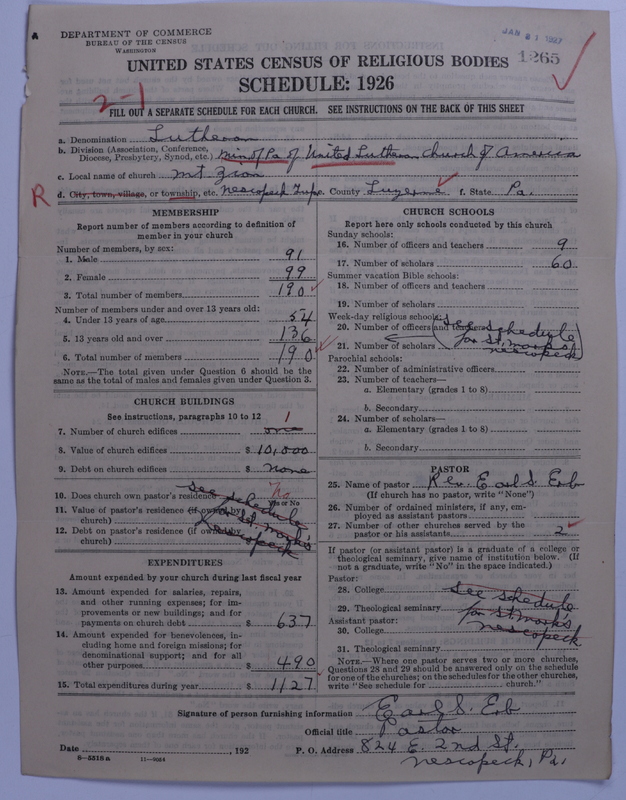 DEPARTMENT OF COMMERCE
BUREAU OF THE CENSUS
WASHINGTON
JAN 31 1927
1265
UNITED STATES CENSUS OF RELIGIOUS BODIES
SCHEDULE: 1926
2-1
FILL OUT A SEPARATE SCHEDULE FOR EACH CHURCH. SEE INSTRUCTIONS ON THE BACK OF THIS SHEET
a. Denomination Lutheran
b. Division (Association, Conference, Diocese, Presbytery, Synod, etc.) Min of Pa of United Lutheran Church of America
c. Local name of church Mt Zion
R
d. City, town, village, or township, etc. Nescopeck Twp. County Luzerne f. State Pa.
MEMBERSHIP
Report number of members according to definition of
member in your church
Number of members, by sex:
1. Male 91
2. Female 99
3. Total number of members 190
Number of members under and over 13 years old:
4. Under 13 years of age 54
5. 13 years old and over 136
6. Total number of members 190
NOTE.—The total given under Question 6 should be the
same as the total of males and females given under Question 3.
CHURCH BUILDINGS
See instructions, paragraphs 10 to 12
7. Number of church edifices one 1
8. Value of church edifices $ 10,000
9. Debt on church edifices $ none
10. Does church own pastor's residence No
Yes or No
11. Value of pastor's residence (if owned by
church)
12. Debt on pastor's residence (if owned by
church)
See schedule
for St. Marks
Nescopeck
EXPENDITURES
Amount expended by your church during last fiscal year
13. Amount expended for salaries, repairs,
and other running expenses; for im-
provements or new buildings; and for
payments on church debt $ 637
14. Amount expended for benevolences, in-
cluding home and foreign missions; for
denominational support; and for all
other purposes $ 490
15. Total expenditures during year $ 1127
CHURCH SCHOOLS
Report here only schools conducted by this church
Sunday schools:
16. Number of officers and teachers 9
17. Number of scholars 60
Summer vacation Bible schools:
18. Number of officers and teachers
19. Number of scholars
Week-day religious schools:
20. Number of officers and teachers
21. Number of scholars
See schedule
for St. Marks
Nescopeck
Parochial schools:
22. Number of administrative officers
23. Number of teachers—
a. Elementary (grades 1 to 8)
b. Secondary
24. Number of scholars—
a. Elementary (grades 1 to 8)
b. Secondary
PASTOR
25. Name of pastor Rev. Earl S. Erb
(If church has no pastor, write "None")
26. Number of ordained ministers, if any, em-
ployed as assistant pastors
27. Number of other churches served by the
pastor or his assistants 2
If pastor (or assistant pastor) is a graduate of a college or
theological seminary, give name of institution below. (If
not a graduate, write "No" in the space indicated.)
Pastor:
28. College
29. Theological seminary
Assistant pastor:
30. College
See schedule
for St. Marks
Nescopeck
31. Theological seminary
NOTE.—Where one pastor serves two or more churches,
Questions 28 and 29 should be answered only on the schedule
for one of the churches; on the schedules for the other churches,
write "See schedule for church."
Signature of person furnishing information Earl S. Erb
Official title Pastor
Date , 192 P. O. Address 824 E. 2nd St.
Nescopeck, Pa.
8-5318a 11-9084